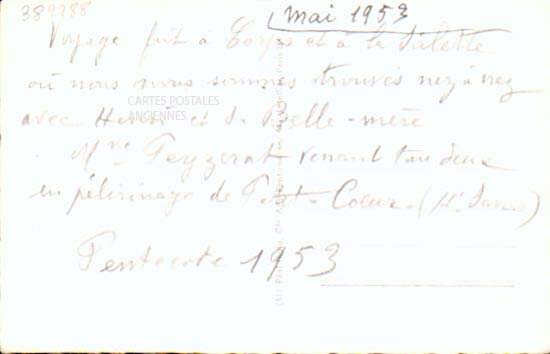 389788
mai 1953
Voyage fait à Corps et à la Salette
où nous nous sommes trouvés nez à nez
avec Henri et sa Belle-mère
CARTES POSTALES
ANCIENNES
Mme Peyzerat venant tous deux
en pélérinage de Petit-Coeur (
Pentecote 1953